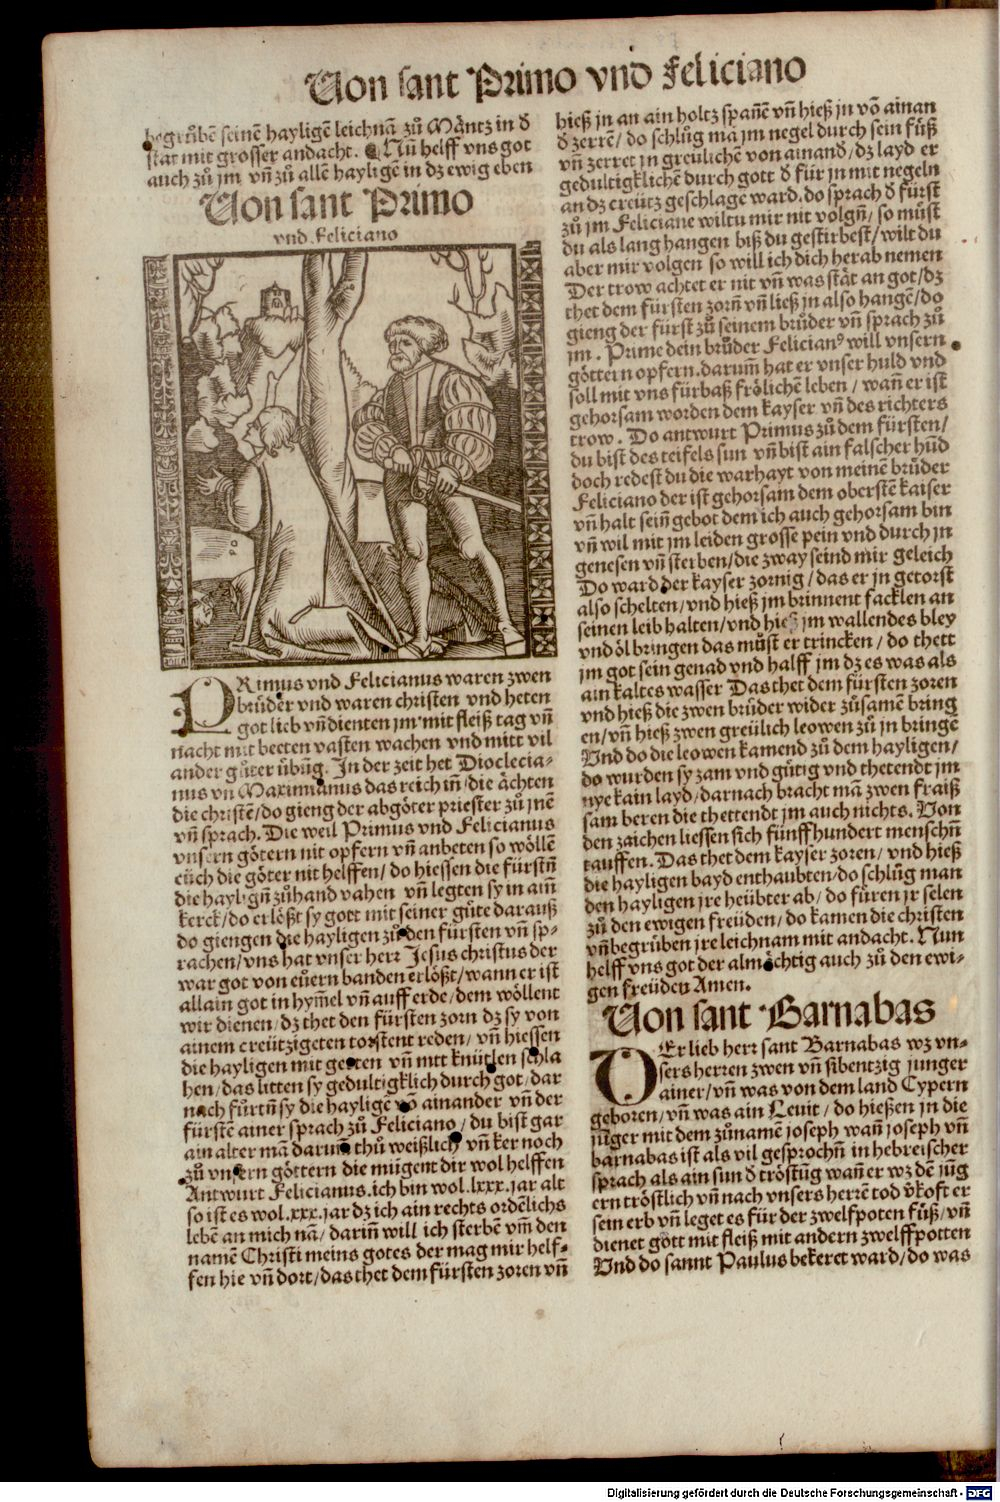 Von sant Primo vnd Feliciano
begrůbē seinē hayligē leichnā zů Mäntz in d̕
stat mit grosser andacht. Nū helff vns got
auch zů jm vñ zů allē hayligē in dz ewig eben
Von sant Primo
vnd Feliciano
PRimus vnd Felicianus waren zwen
brůder vnd waren christen vnd heten
got lieb vñ dienten jm mit fleiß tag vñ
nacht mit beeten vasten wachen vnd mitt vil
ander gůter übūg. In der zeit het Dioclecia-
nus vñ Maximianus das reich iñ/die ächten
die christē/do gieng der abgöter priester zů jnē
vñ sprach. Die weil Primus vnd Felicianus
vnsern götern nit opfern vñ anbeten so wöllē
eüch die göter nit helffen/do hiessen die fürstñ
die haylign̄ zůhand vahen vñ legten sy in ain̄
kerck/do erlößt sy gott mit seiner gůte darauß
do giengen die hayligen zů den fürsten vñ sp-
rachen/vns hat vnser herr Jesus christus der
war got von eüern banden erlößt/wann er ist
allain got in hym̄el vñ auff erde/dem wöllent
wir dienen/dz thet den fürsten zorn dz sy von
ainem creützigeten torstent reden/vñ hiessen
die hayligen mit gerten vñ mit knütlen schla
hen/das litten sy gedultigklich durch got/dar
nach fůrtñ sy die hayligē vō ainander vñ der
fürstē ainer sprach zů Feliciano/du bist gar
ain alter mā darum̄ thů weißlich vñ ker noch
zů vnsern göttern die mügent dir wol helffen
Antwurt Felicianus.ich bin wol.lxxx.jar alt
so ist es wol.xxx.jar dz ich ain rechts ordēlichs
lebē an mich nā/darin̄ will ich sterbē vm̄ den
namē Christi meins gotes der mag mir helf-
fen hie vñ dort/das thet dem fürsten zoren vñ
hieß jn an ain holtz spañē vñ hieß jn vō ainan
d̕ zerrē/do schlůg mā jm negel durch sein fůß
vñ zerret jn greülichē von ainand̕/dz layd er
gedultigklichē durch gott d̕ für jn mit negeln
an dz creütz geschlagē ward.do sprach d̕ fürst
zů jm Feliciane wiltu mir nit volgñ/so můst
du als lang hangen biß du gestirbest/wilt du
aber mir volgen so will ich dich herab nemen
Der trow achtet er nit vñ was stät an got/dz
thet dem fürsten zorn̄ vñ ließ jn also hangē/do
gieng der fürst zů seinem brůder vñ sprach zů
jm. Prime dein brůder Felicianꝰ will vnsern
göttern opfern.darum̄ hat er vnser huld vnd
soll mit vns fürbaß frölichē leben/wañ er ist
gehorsam worden dem kayser vñ des richters
trow. Do antwurt Primus zů dem fürsten/
du bist des teifels sun vñ bist ain falscher hūd
doch redest du die warhayt von meinē brůder
Feliciano der ist gehorsam dem oberstē kaiser
vñ halt sein̄ gebot dem ich auch gehorsam bin
vñ wil mit jm leiden grosse pein vnd durch jn
genesen vñ sterben/die zway seind mir geleich
Do ward der kayser zornig/das er jn getorst
also schelten/vnd hieß jm brinnent facklen an
seinen leib halten/vnd hieß jm wallendes bley
vnd öl bringen das můst er trincken/do thett
jm got sein genad vnd halff jm dz es was als
ain kaltes wasser Das thet dem fürsten zoren
vnd hieß die zwen brůder wider zůsamē bring
en/vñ hieß zwen greülich leowen zů jn bringē
Vnd do die leowen kamend zů dem hayligen/
do wurden sy zam vnd gůtig vnd thetendt jm
nye kain layd/darnach bracht mā zwen fraiß
sam beren die thettendt jm auch nichts. Von
den zaichen liessen sich fünffhundert menschñ
tauffen. Das thet dem kayser zoren/vnd hieß
die hayligen bayd enthaubten/do schlůg man
den hayligen jre heübter ab/do fůren jr selen
zů den ewigen freüden/do kamen die christen
vñ begrůben jre leichnam mit andacht. Nun
helff vns got der almächtig auch zů den ewi-
gen freüden Amen.
Von sant Barnabas
DEr lieb herr sant Barnabas wz vn-
sers herren zwen vñ sibentzig junger
ainer/vñ was von dem land Cypern
geboren/vñ was ain Leuit/do hießen jn die
jūger mit dem zůnamē joseph wañ joseph vñ
barnabas ist als vil gesprochñ in hebreischer
sprach als ain sun d̕ tröstūg wañ er wz dē jūg
ern tröstlich vñ nach vnsers herrē tod v̕koft er
sein erb vñ leget es für der zwelfpoten fůß/vñ
dienet gott mit fleiß mit andern zwelffpotten
Vnd do sannt Paulus bekeret ward/do was
Digitalisierung gefördert durch die Deutsche Forschungsgemeinschaft - DFG